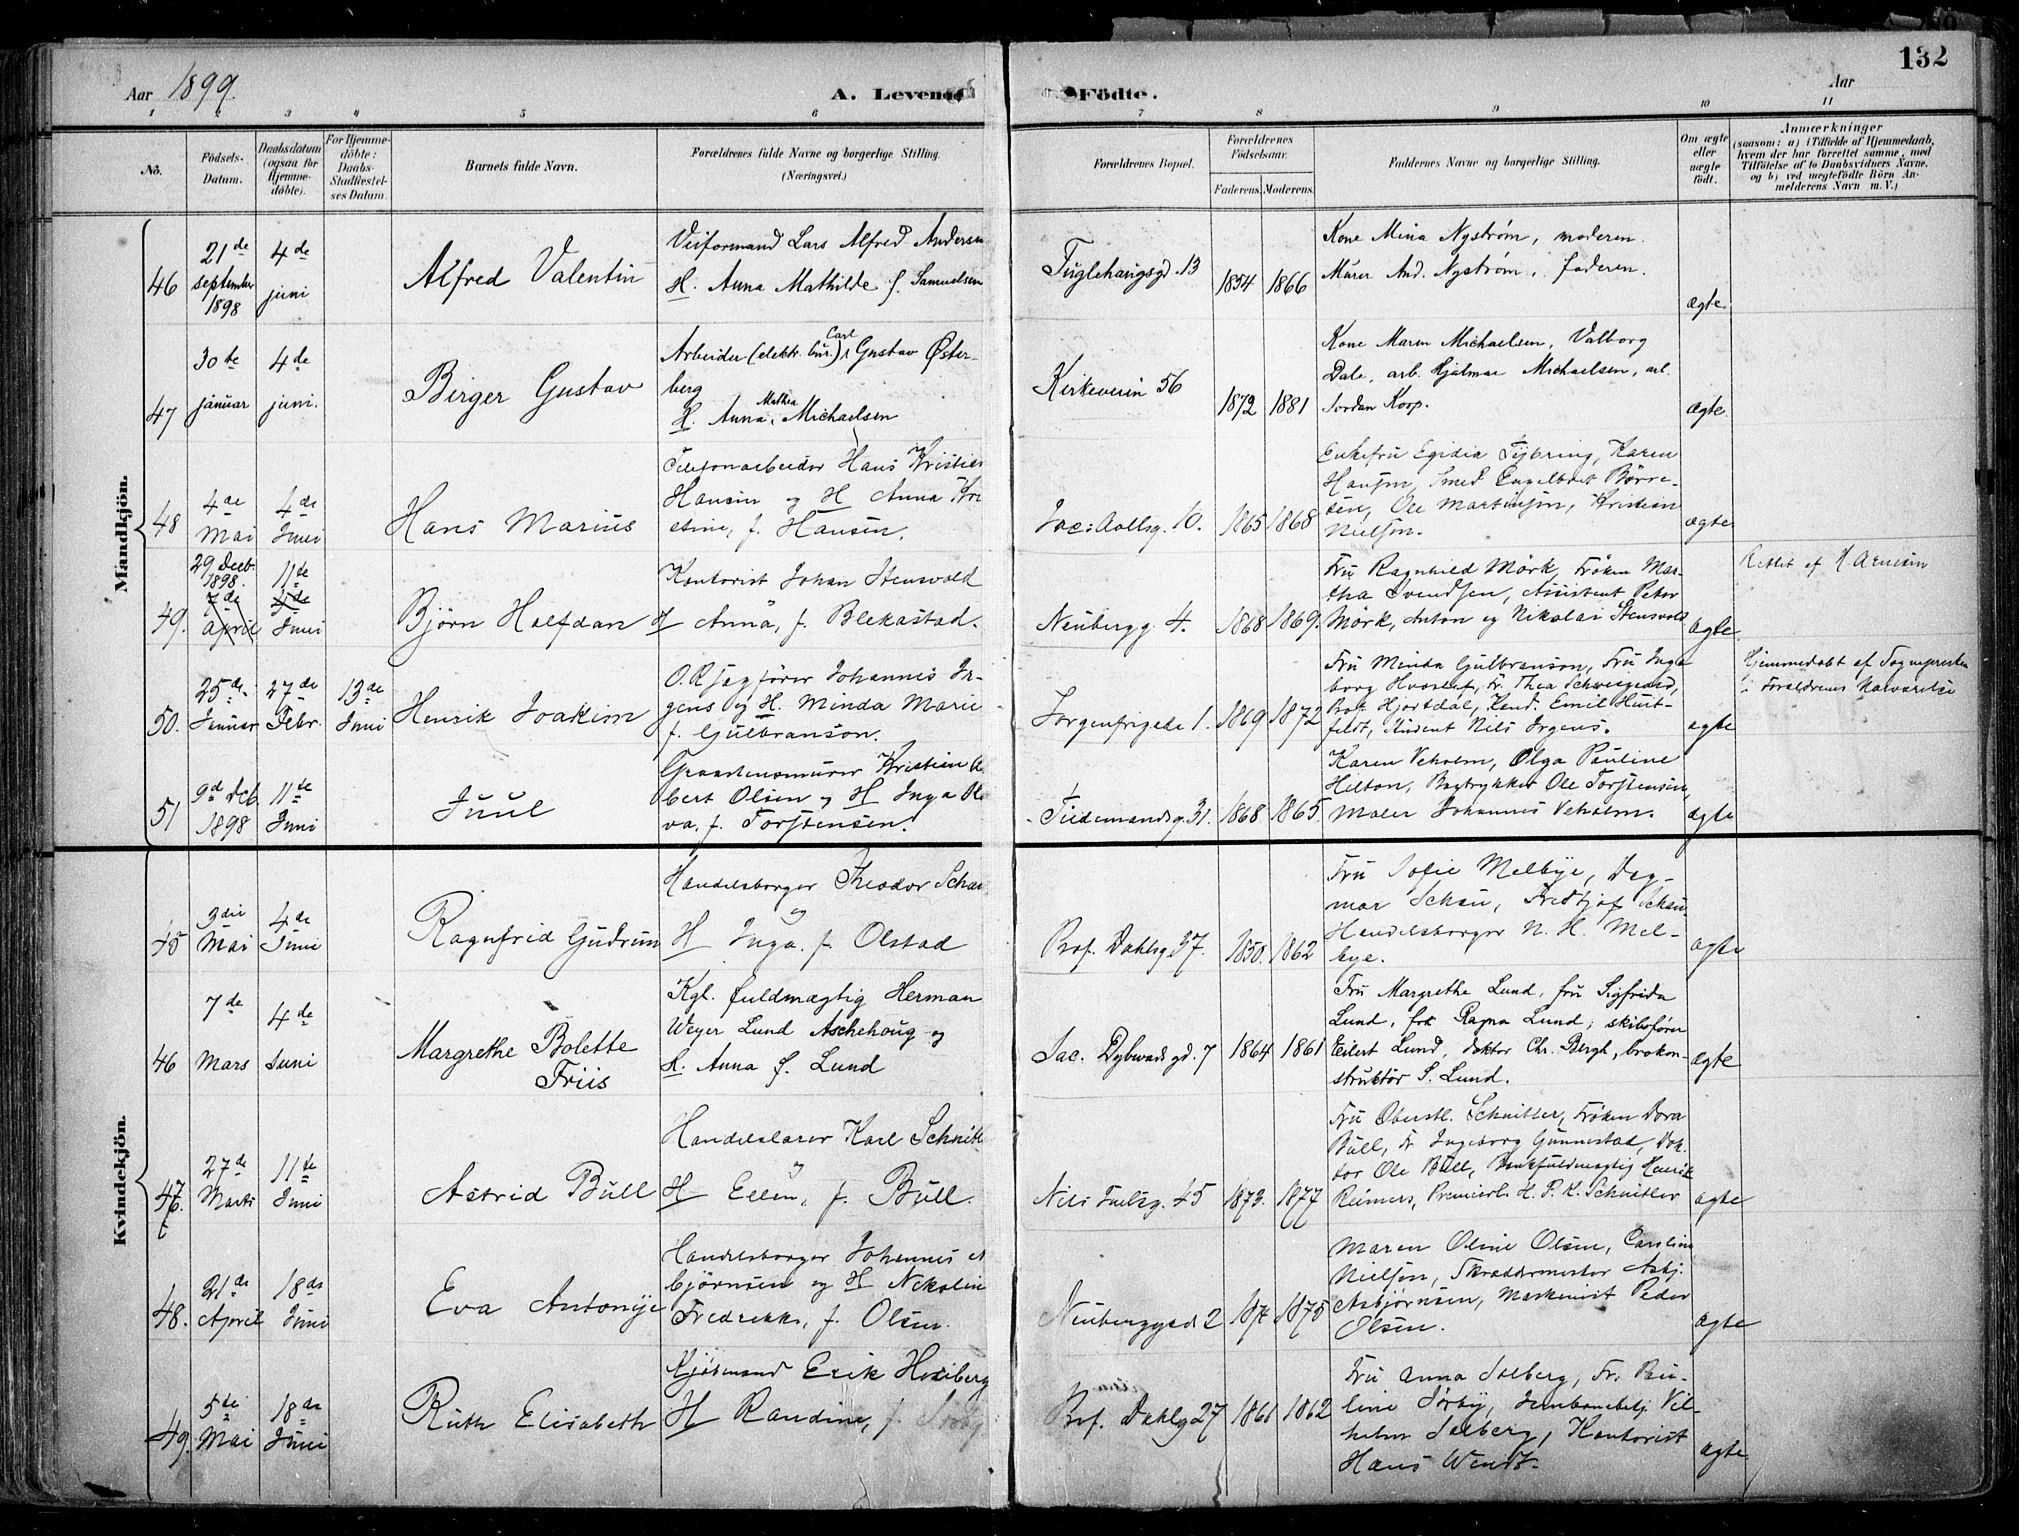 132
Aar 1899.
A. Levende
Födte.
Aar
1 2 3 4 5 6 7 8 9 10 11
No.
Födsels-Datum.
Daabsdatum (ogsaa for Hjemme-döbte).
For Hjemme-döbte: Daabs-Stadfæstel-ses Datum.
Barnets fulde Navn.
Forældrenes fulde Navne og borgerlige Stilling. (Næringsvei.)
Forældrenes Bopæl.
Forældrenes Födselsaar.
Faderens. Moderens.
Faddernes Navne og borgerlige Stilling.
Om ægte eller uægte födt.
Anmærkninger
(saasom: a) i Tilfælde af Hjemmedaab, hvem der har forrettet samme, med Tilföielse af to Daabsvidners Navne, og b) ved uægtefödte Börn An-melderens Navn m. V.)
Mandkjön.
46 21de september 1898 4de juni
Alfred Valentin
Veiformand Lars Alfred Andersen
H. Anna Mathilde f. Samuelsen
Fuglehaugsgd. 13 1854 1866
Kone Mina Nystrøm, moderen.
Murer And. Nystrøm, faderen.
ægte
47 30te januar 4de juni.
Birger Gustav
Arbeider (elektr. bur.) Carl Gustav Øster-
berg
H. Anna Mathea Michaelsen
Kirkeveien 56 1872 1881
Kone Maren Michaelsen, Valborg
Dale, arb. Hjalmar Michaelsen, arb.
Jordan Korp.
ægte
48 4de Mai 4de Juni
Hans Marius
Telefonarbeider Hans Kristian
Hansen og H Anna Kri
stine, f. Hansen.
Jac: Aallsg. 10. 1865 1868
Enkefru Egidia Tybring, Karen
Hansen, Smed Engelbret Børre-
sen, Ole Martinsen, Kristian
Nielsen.
ægte
49. 29 Decb. 1898. 7de April 11te 4de Juni
Bjørn Halfdan
Kontorist Johan Stensvold
H Anna, f. Blekastad.
Neubergg. 4. 1868 1869.
Fru Ragnhild Mörk, Frøken Mar-
tha Svendsen, Assistent Peter
Mörk, Anton og Nikolai Stensvold
ægte
Rettet af H. Arnesen
50. 25de Januar 27de Febr. 13de Juni
Henrik Joakim
O.R.sagfører Johannes Ir-
gens og H. Minda Marie
f. Gulbranson.
Sorgenfrigade 1. 1869 1872
Fru Minda Gulbranson, Fru Inge
borg Hvoslef, Fr. Thea Schweigaard,
Prof. Hjortdal, Kand. Emil Huit-
feldt, Student Nils Irgens.
ægte
Hjemmedøbt af Sognepresten
i Forældrenes Nærværelse
51 9d Dcb. 1898 11te Juni
Juul
Graastensmurer Kristian Al
bert Olsen og H Inga Ol
va, f. Torstensen.
Tidemandsg. 31. 1868 1865.
Karen Veholm, Olga Pauline
Hilton, Bogtrykker Ole Torstensen,
Maler Johannes Veholm.
ægte
Kvindekjön.
45 3die Mai 4de Juni
Ragnfrid Gudrun
Handelsborger Theodor Schau
og
H Inga, f. Olstad
Prof. Dahlsg. 37. 1850. 1862
Fru Sofie Melbye, Dag-
mar Schau, Fredtjof Schau
Handelsborger N. H. Mel-
bye.
ægte
46 7de Mars 4de Juni
Margrethe Bolette
Friis
Kgl. fuldmægtig Herman
Weyer Lund Aschehoug og
H. Anna f. Lund
Jac. Dybwads gd. 7 1864 1861
Fru Margrethe Lund, fru Sigfrida
Lund, frk Ragna Lund; skibsfører
Eilert Lund, doktor Chr. Bergh, brokon-
struktör S. Lund.
ægte
47. 27de Marts 11te Juni
Astrid Bull
Handelslærer Karl Schnitl
og
H Ellen, f. Bull.
Nils Juelsg. 45 1873. 1877
Fru Oberstl. Schnitler, Frøken Dora
Bull, Fr. Ingeborg Gunnestad, Dok-
tor Ole Bull, Bankfuldmægtig Henrik
Reimers, Premierl. H. P. K. Schnitler
ægte
48. 21de April 18de Juni
Eva Antonije
Handelsborger Johannes A
bjørnsen og H Nekoline
Fredrikke, f. Olsen.
Neuberggad 2 1874 1875
Maren Oline Olsen, Caroline
Nielsen, Skræddermester Asbj.
Asbjørnsen, Maskinist Peder
Olsen.
ægte
49. 5de Mai 18de Juni
Ruth Elisabeth
Kjøbmand Erik Hesiberg
H Randine, f. Sørby
Prof. Dahlsg 27 1861 1862
Fru Anna Solberg, Fr. Pau-
line Sørby, Jernbanebetj. Vil-
helm Solberg, Kontorist
Hans Wendt.
ægte